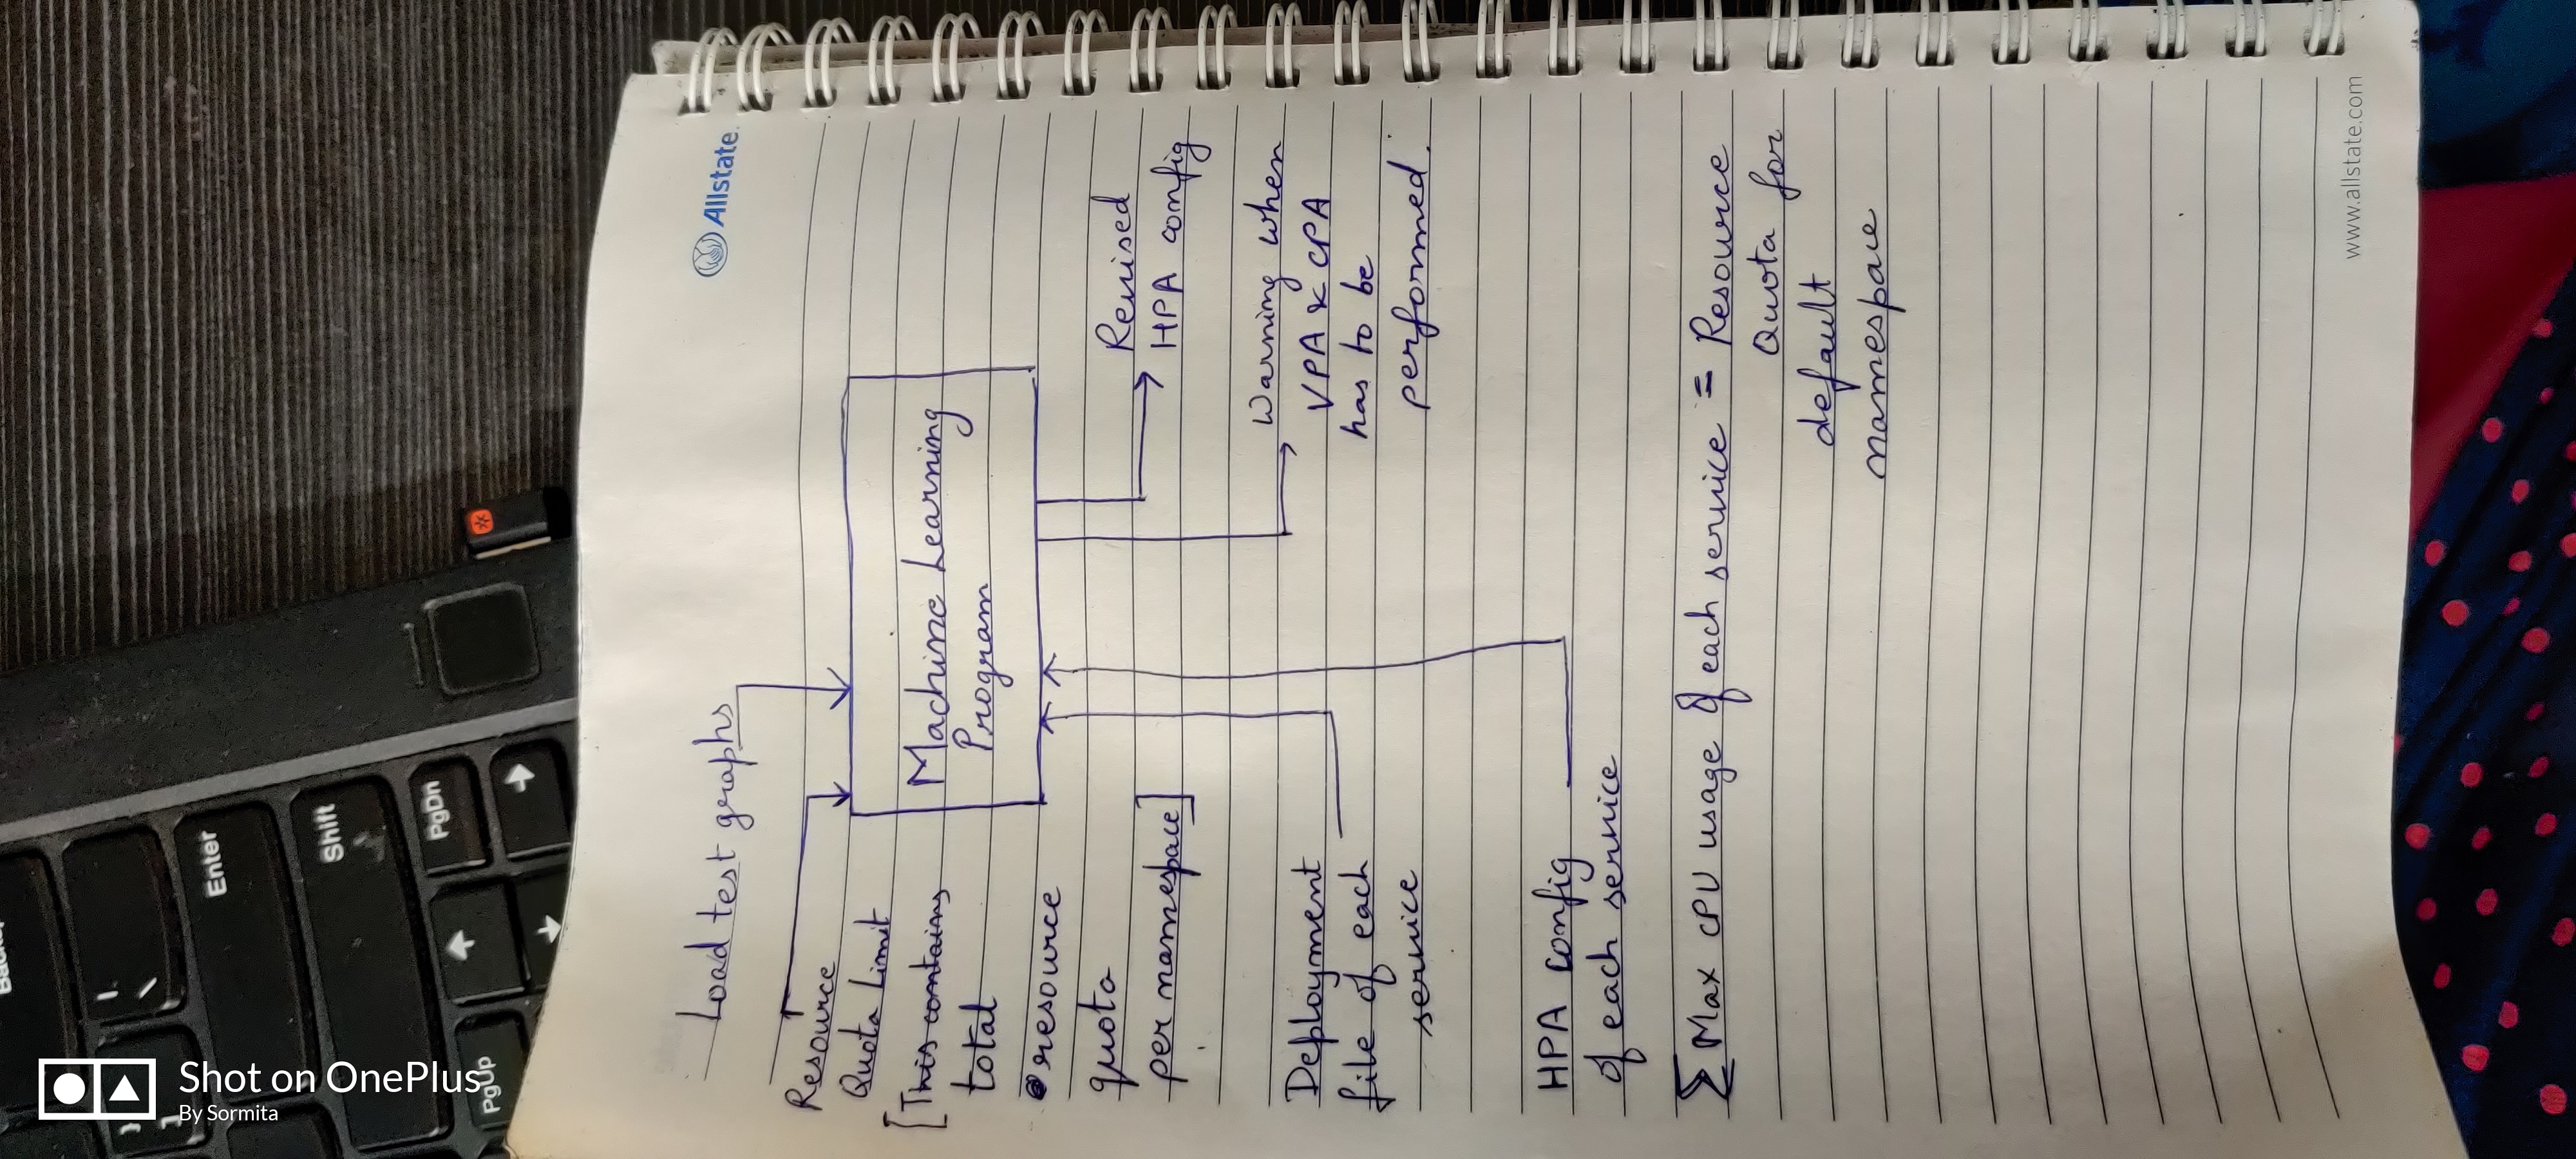 Backsp
Enter
Shift
PgDn
PgUp
Shot on OnePlus
By Sormita
Allstate
Load test graphs
Resource
Quota Limit
[This contains
total
resource
quota
per namespace]
Machine Learning
Program
Revised
HPA config
Warning when
VPA & CPA
has to be
performed.
Deployment
file of each
service
HPA config
of each service
∑ Max CPU usage of each service = Resource
Quota for
default
namespace
www.allstate.com